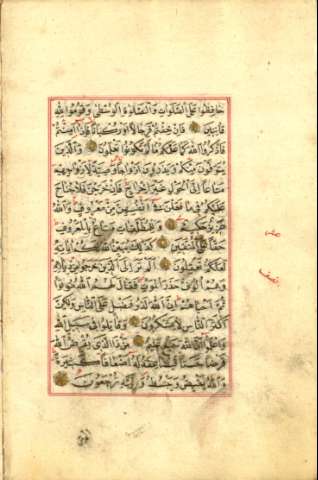 حَافِظُوا عَلَى الصَّلَوَاتِ وَالصَّلٰوةِ الْوُسْطٰى وَقُومُوا لِلّٰهِ
قَانِتِينَ فَاِنْ خِفْتُمْ فَرِجَالًا اَوْ رُكْبَانًا فَاِذَا اَمِنْتُمْ
فَاذْكُرُوا اللّٰهَ كَمَا عَلَّمَكُمْ مَا لَمْ تَكُونُوا تَعْلَمُونَ وَالَّذِينَ
يُتَوَفَّوْنَ مِنْكُمْ وَيَذَرُونَ اَزْوَاجًا وَصِيَّةً لِاَزْوَاجِهِمْ
مَتَاعًا اِلَى الْحَوْلِ غَيْرَ اِخْرَاجٍ فَاِنْ خَرَجْنَ فَلَا جُنَاحَ
عَلَيْكُمْ فِي مَا فَعَلْنَ فِي اَنْفُسِهِنَّ مِنْ مَعْرُوفٍ وَاللّٰهُ
عَزِيزٌ حَكِيمٌ وَلِلْمُطَلَّقَاتِ مَتَاعٌ بِالْمَعْرُوفِ
حَقًّا عَلَى الْمُتَّقِينَ كَذٰلِكَ يُبَيِّنُ اللّٰهُ لَكُمْ اٰيَاتِهِ
لَعَلَّكُمْ تَعْقِلُونَ اَلَمْ تَرَ اِلَى الَّذِينَ خَرَجُوا مِنْ دِيَارِهِمْ
وَهُمْ اُلُوفٌ حَذَرَ الْمَوْتِ فَقَالَ لَهُمُ اللّٰهُ مُوتُوا
ثُمَّ اَحْيَاهُمْ اِنَّ اللّٰهَ لَذُو فَضْلٍ عَلَى النَّاسِ وَلٰكِنَّ
اَكْثَرَ النَّاسِ لَا يَشْكُرُونَ وَقَاتِلُوا فِي سَبِيلِ اللّٰهِ
وَاعْلَمُوا اَنَّ اللّٰهَ سَمِيعٌ عَلِيمٌ مَنْ ذَا الَّذِي يُقْرِضُ اللّٰهَ
قَرْضًا حَسَنًا فَيُضَاعِفَهُ لَهُ اَضْعَافًا كَثِيرَةً
وَاللّٰهُ يَقْبِضُ وَيَبْسُطُ وَاِلَيْهِ تُرْجَعُونَ